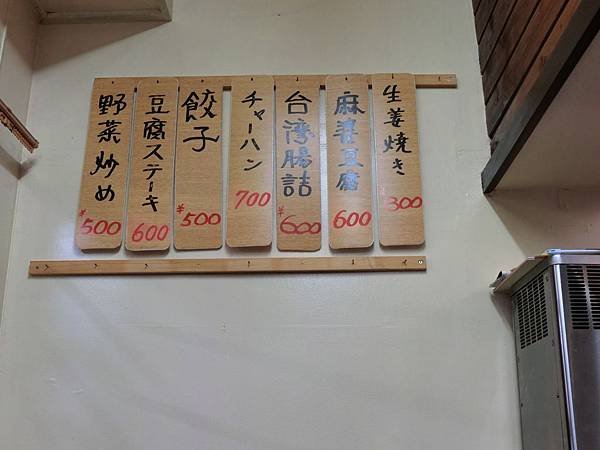 生姜焼き
300
麻婆豆腐
600
台湾腸詰
¥600
チャーハン
700
餃子
¥500
豆腐ステーキ
600
野菜炒め
¥500